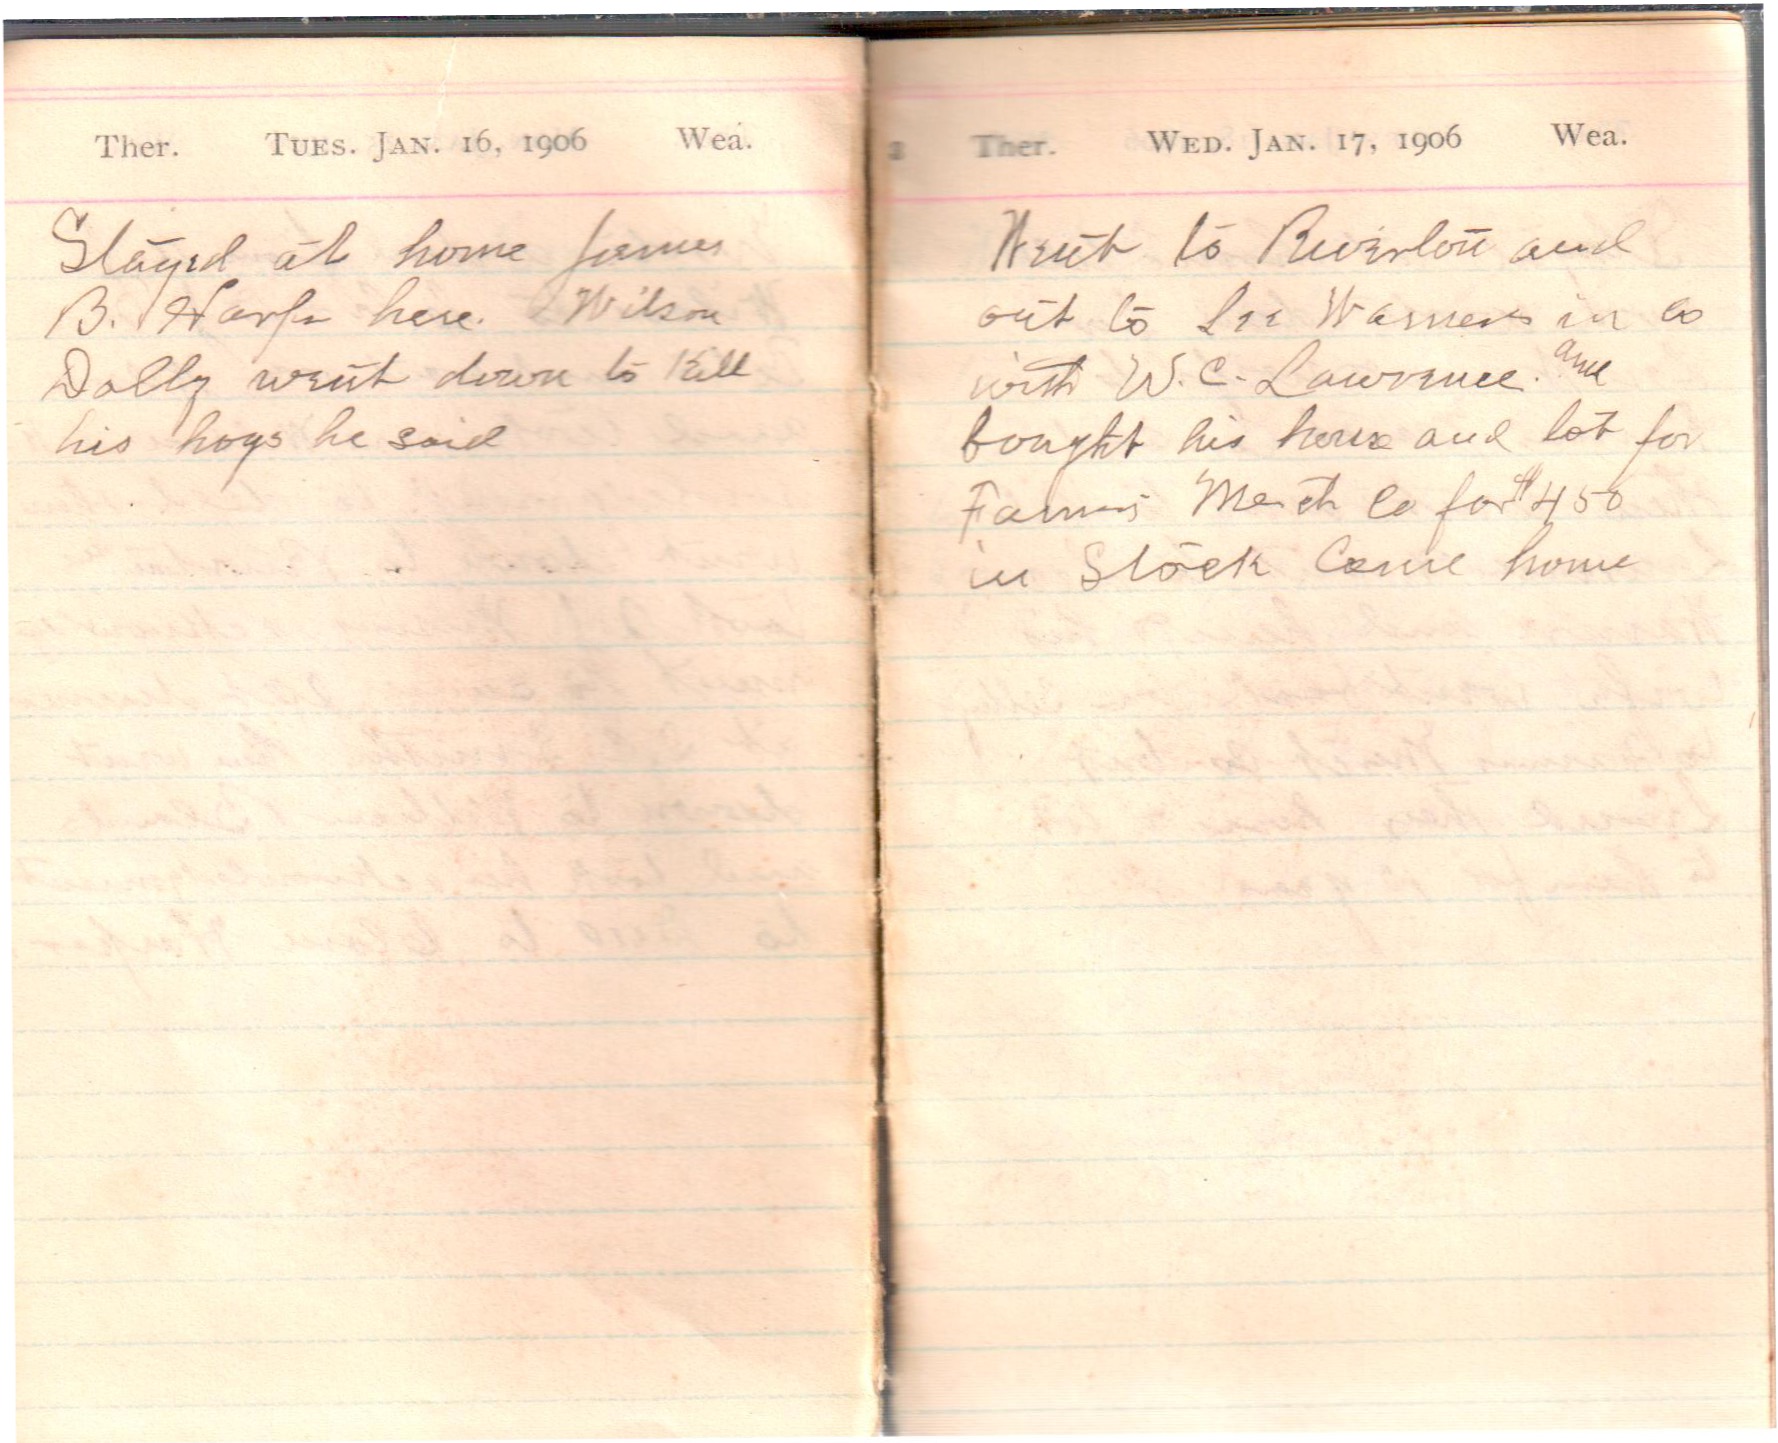 Ther. TUES. JAN. 16, 1906 Wea.
Stayed at home James
B. Harp here. Wilson
Dolly went down to Kill
his hogs he said
Ther. WED. JAN. 17, 1906 Wea.
Went to Riverton and
out to Lee Warners in co
with W. C. Lawrence. and
bought his house and lot for
Farmers Merch Co for $450
in Stock Came home